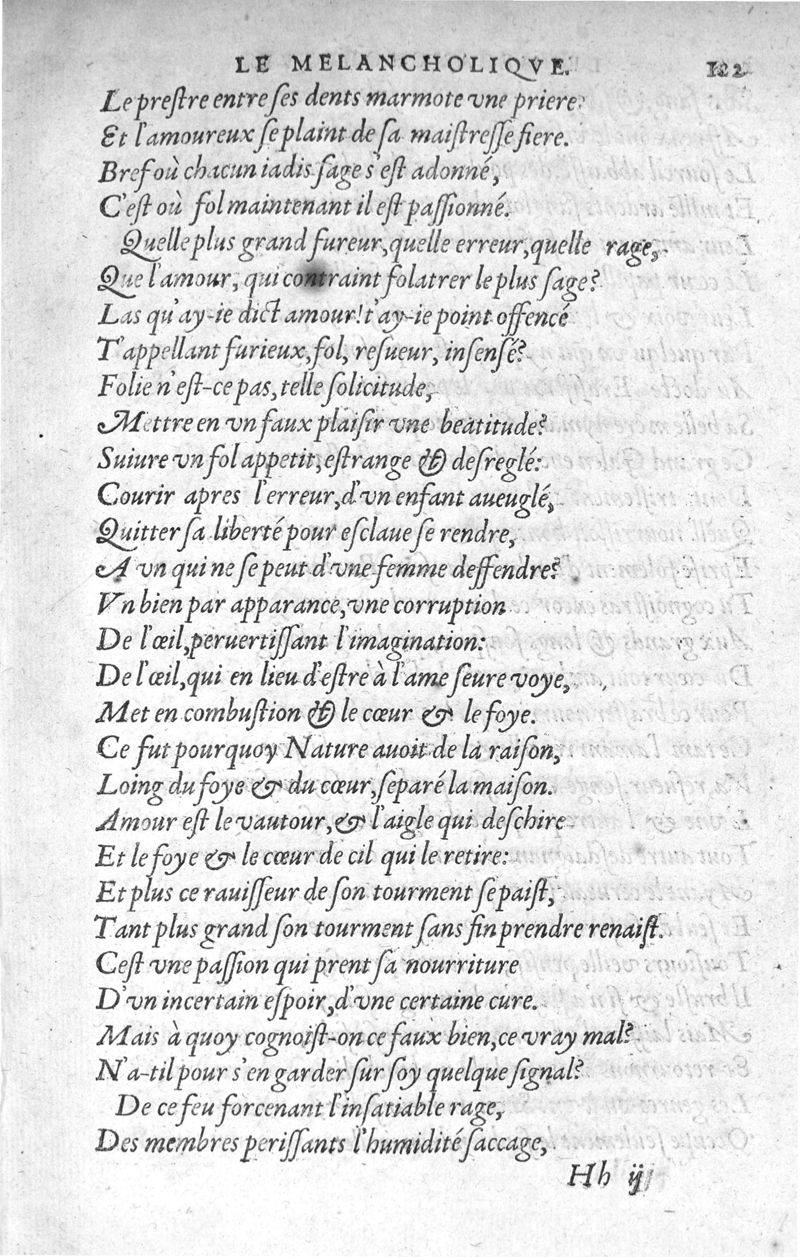 LE MELANCHOLIQVE. 122
Le preſtre entre ſes dents marmote vne priere:
Et l'amoureux ſe plaint de ſa maiſtreſſe fiere.
Bref où chacun iadis ſage s'eſt adonné,
C'eſt où fol maintenant il eſt paſſionné.
Quelle plus grand fureur, quelle erreur, quelle rage,
Que l'amour, qui contraint folatrer le plus ſage?
Las qu'ay-ie dict amour! t'ay-ie point offencé
T'appellant furieux, fol, reſueur, inſenſé?
Folie n'eſt-ce pas, telle ſolicitude,
Mettre en vn faux plaiſir vne beatitude?
Suiure vn fol appetit, eſtrange & deſreglé:
Courir apres l'erreur, d'vn enfant aueuglé,
Quitter ſa liberté pour eſclaue ſe rendre,
A vn qui ne ſe peut d'vne femme deffendre?
Vn bien par apparance, vne corruption
De l'œil, peruertiſſant l'imagination:
De l'œil, qui en lieu d'eſtre à l'ame ſeure voye,
Met en combuſtion & le cœur & le foye.
Ce fut pourquoy Nature auoit de la raiſon,
Loing du foye & du cœur, ſeparé la maiſon.
Amour eſt le vautour, & l'aigle qui deſchire
Et le foye & le cœur de cil qui le retire:
Et plus ce rauiſſeur de ſon tourment ſe paiſt,
Tant plus grand ſon tourment ſans fin prendre renaiſt.
Ceſt vne paſſion qui prent ſa nourriture
D'vn incertain eſpoir, d'vne certaine cure.
Mais à quoy cognoiſt-on ce faux bien, ce vray mal?
N'a-til pour s'en garder ſur ſoy quelque ſignal?
De ce feu forcenant l'inſatiable rage,
Des membres periſſants l'humidité ſaccage,
Hh ij